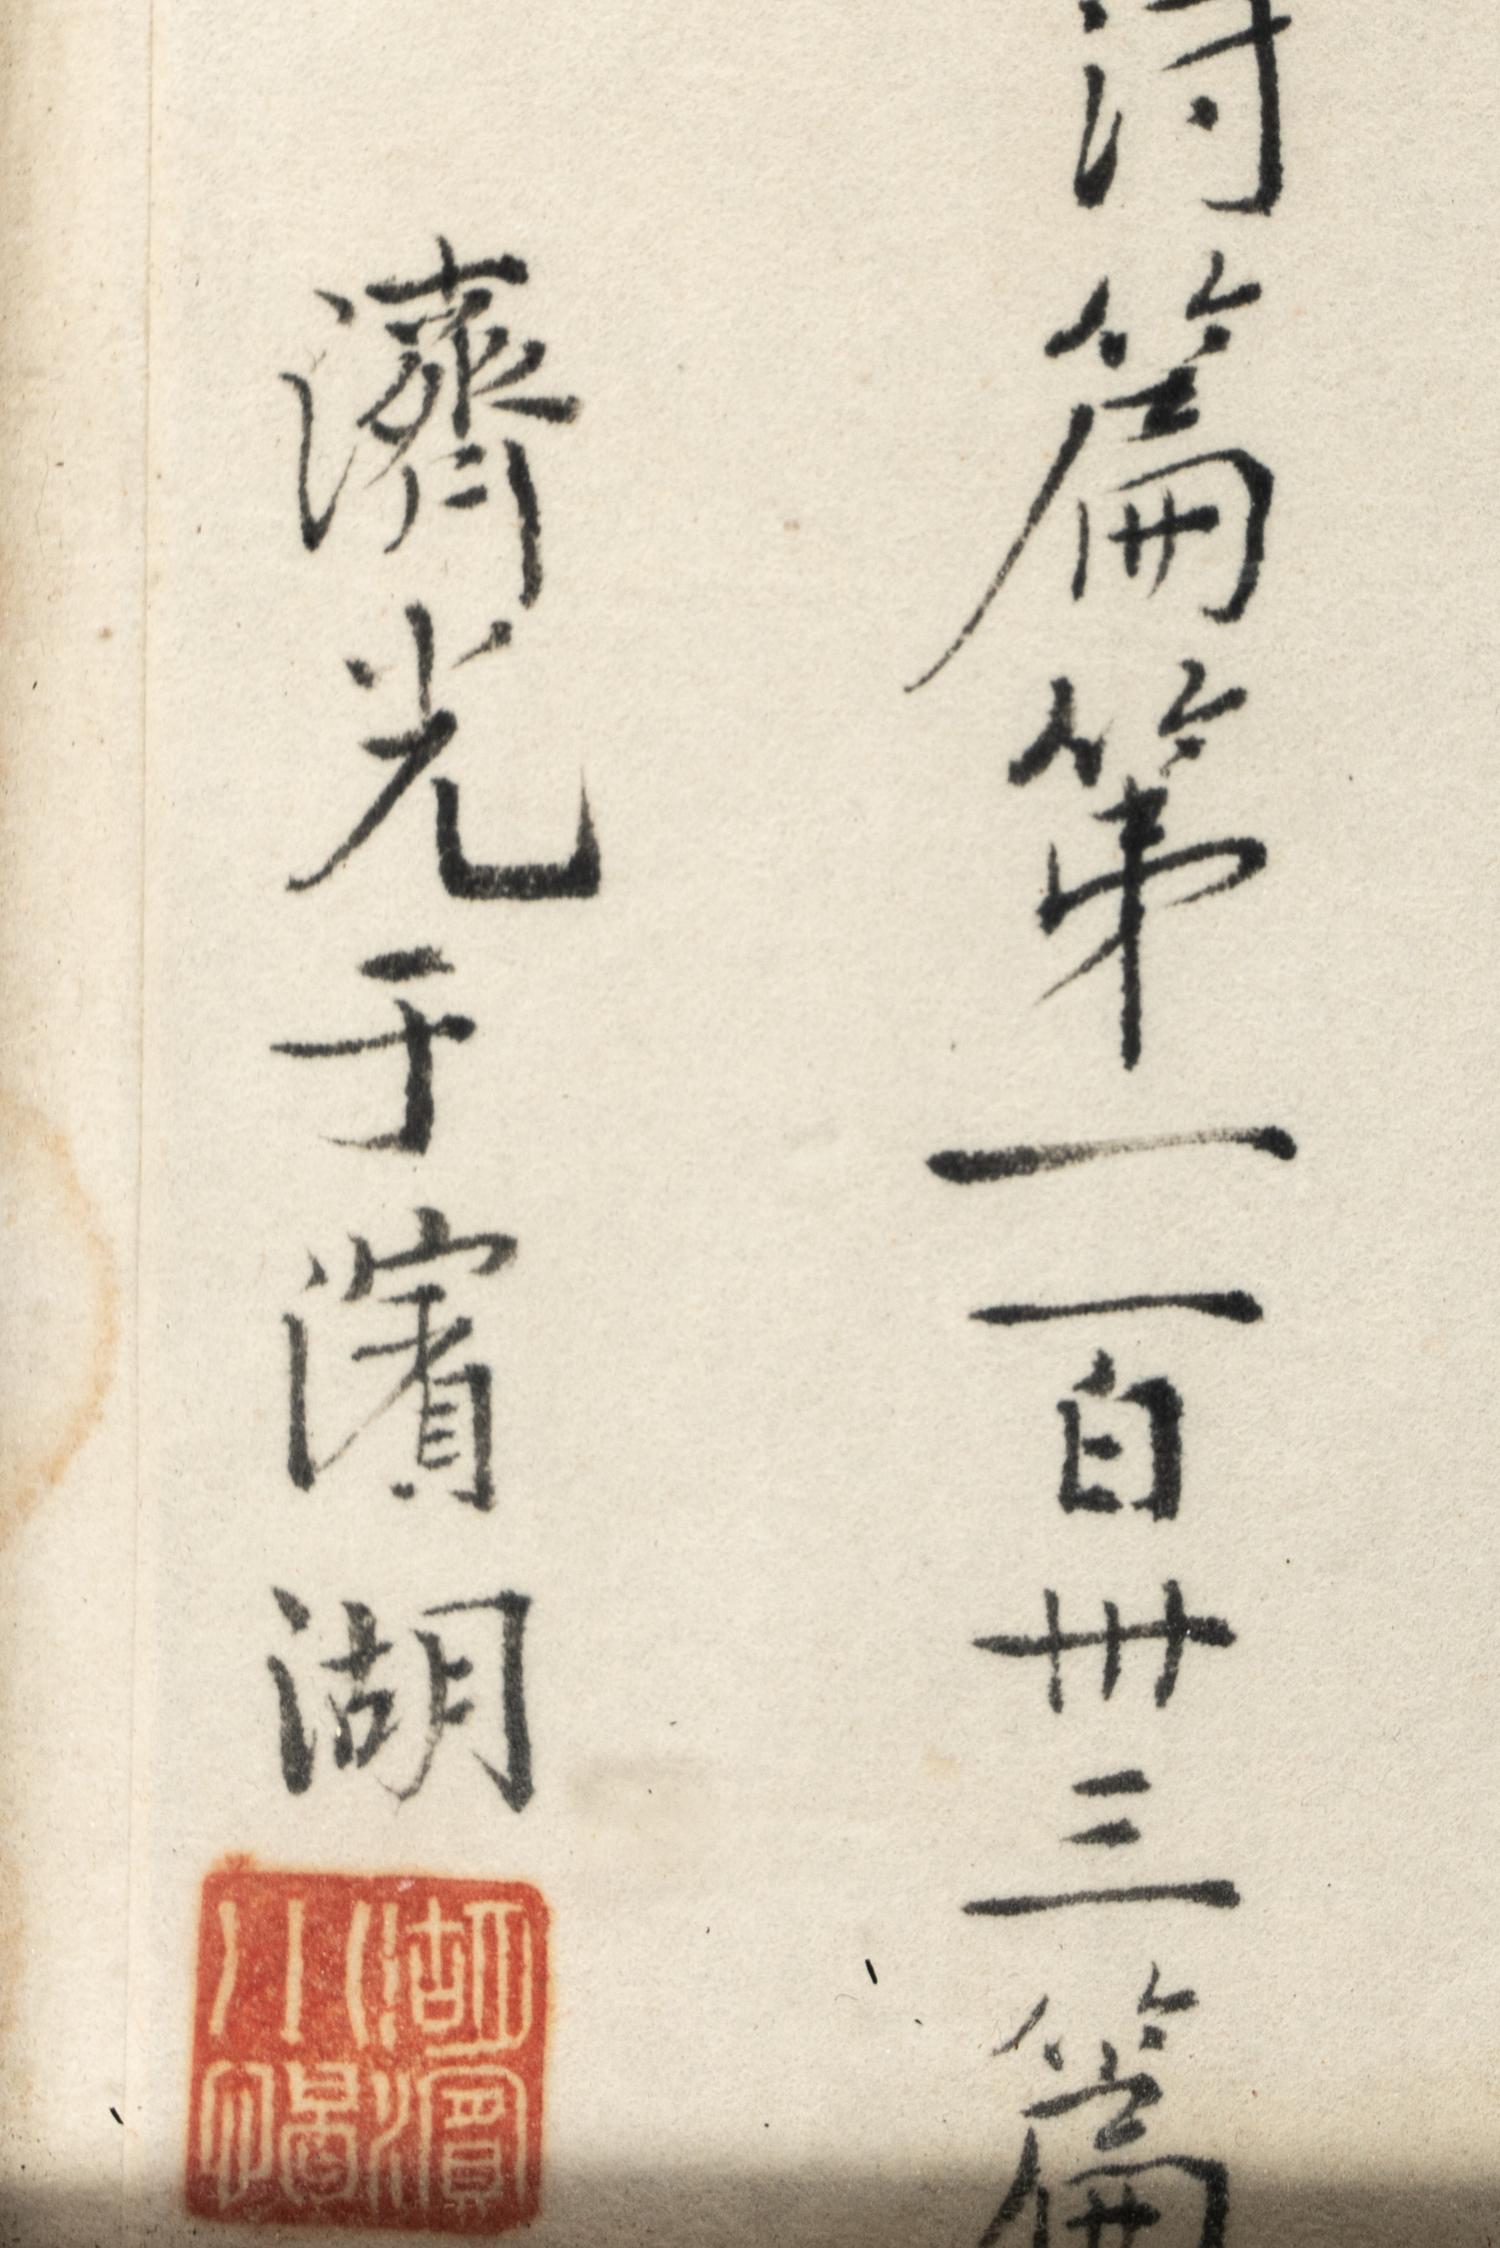 詩篇第一百卅三篇
濟光于濱湖
湖濱
小